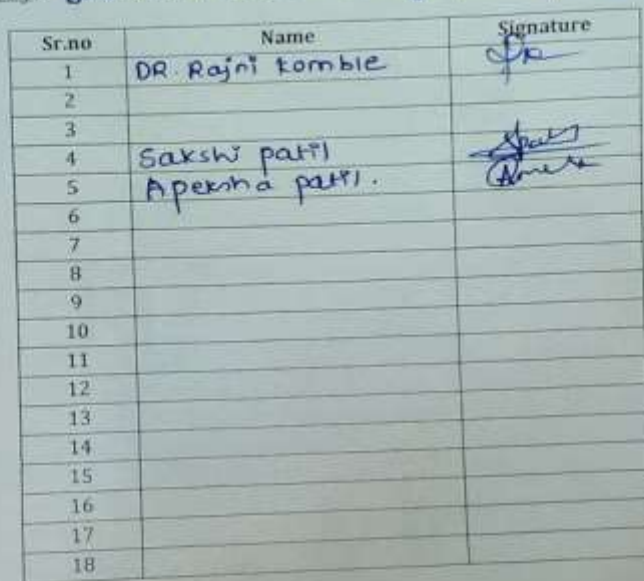 Sr.no Name Signature
1 DR. Rajni Komble
2
3
4 Sakshi patil
5 Apeksha patil.
6
7
8
9
10
11
12
13
14
15
16
17
18